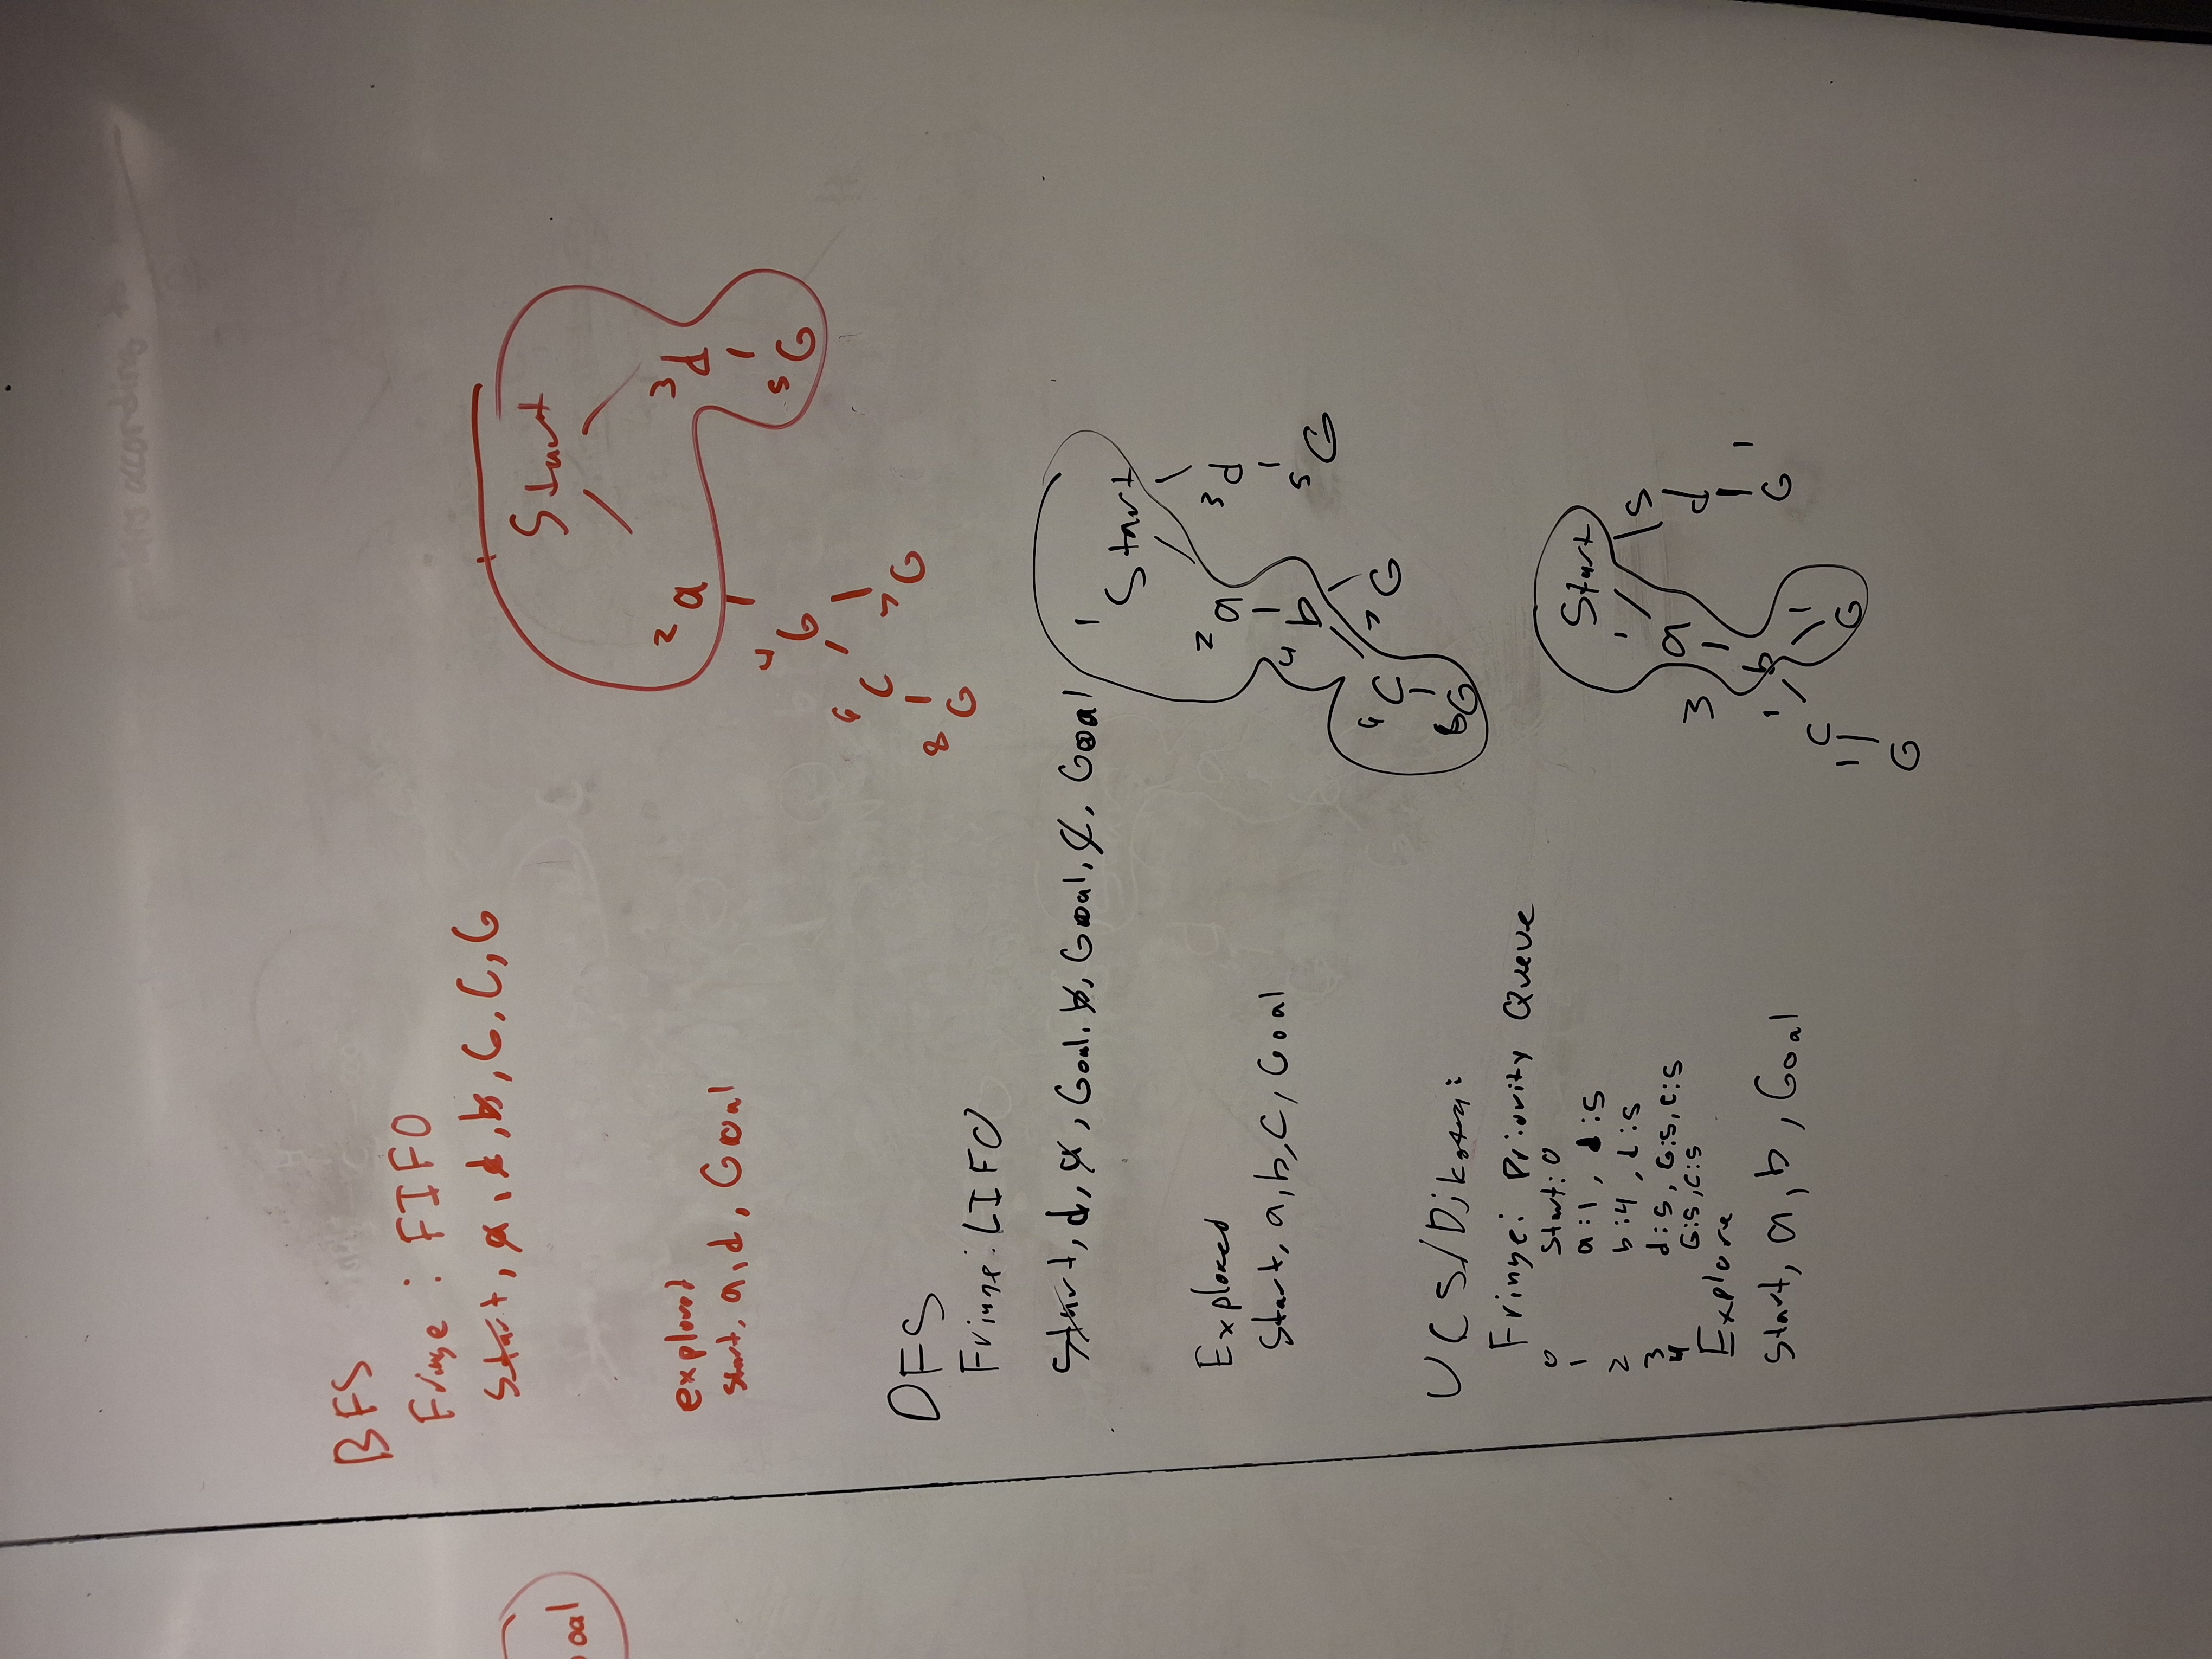 problems according to
oal
BFS
Fringe : FIFO
Start, a, d, b, G, C, G
explored
start, a, d, Goal
Start
2 a 3 d
4 G 5 G
6 C 7 G
8 G
DFS
Fringe: LIFO
Start, d, a, Goal, b, Goal, C, Goal
Explored
Start, a, b, C, Goal
1
Start
2 a 3 d
4 b 5 G
6 C 7 G
8 G
UCS/Dijkstra:
Fringe: Priority Queue
0 Start: 0
1 a:1, d:5
2 b:4, d:5
3 d:5, G:5, C:5
4 G:5, C:5
Explore
Start, a, b, Goal
Start
1 5
a d
3 1
b G
1 1
C G
1
G